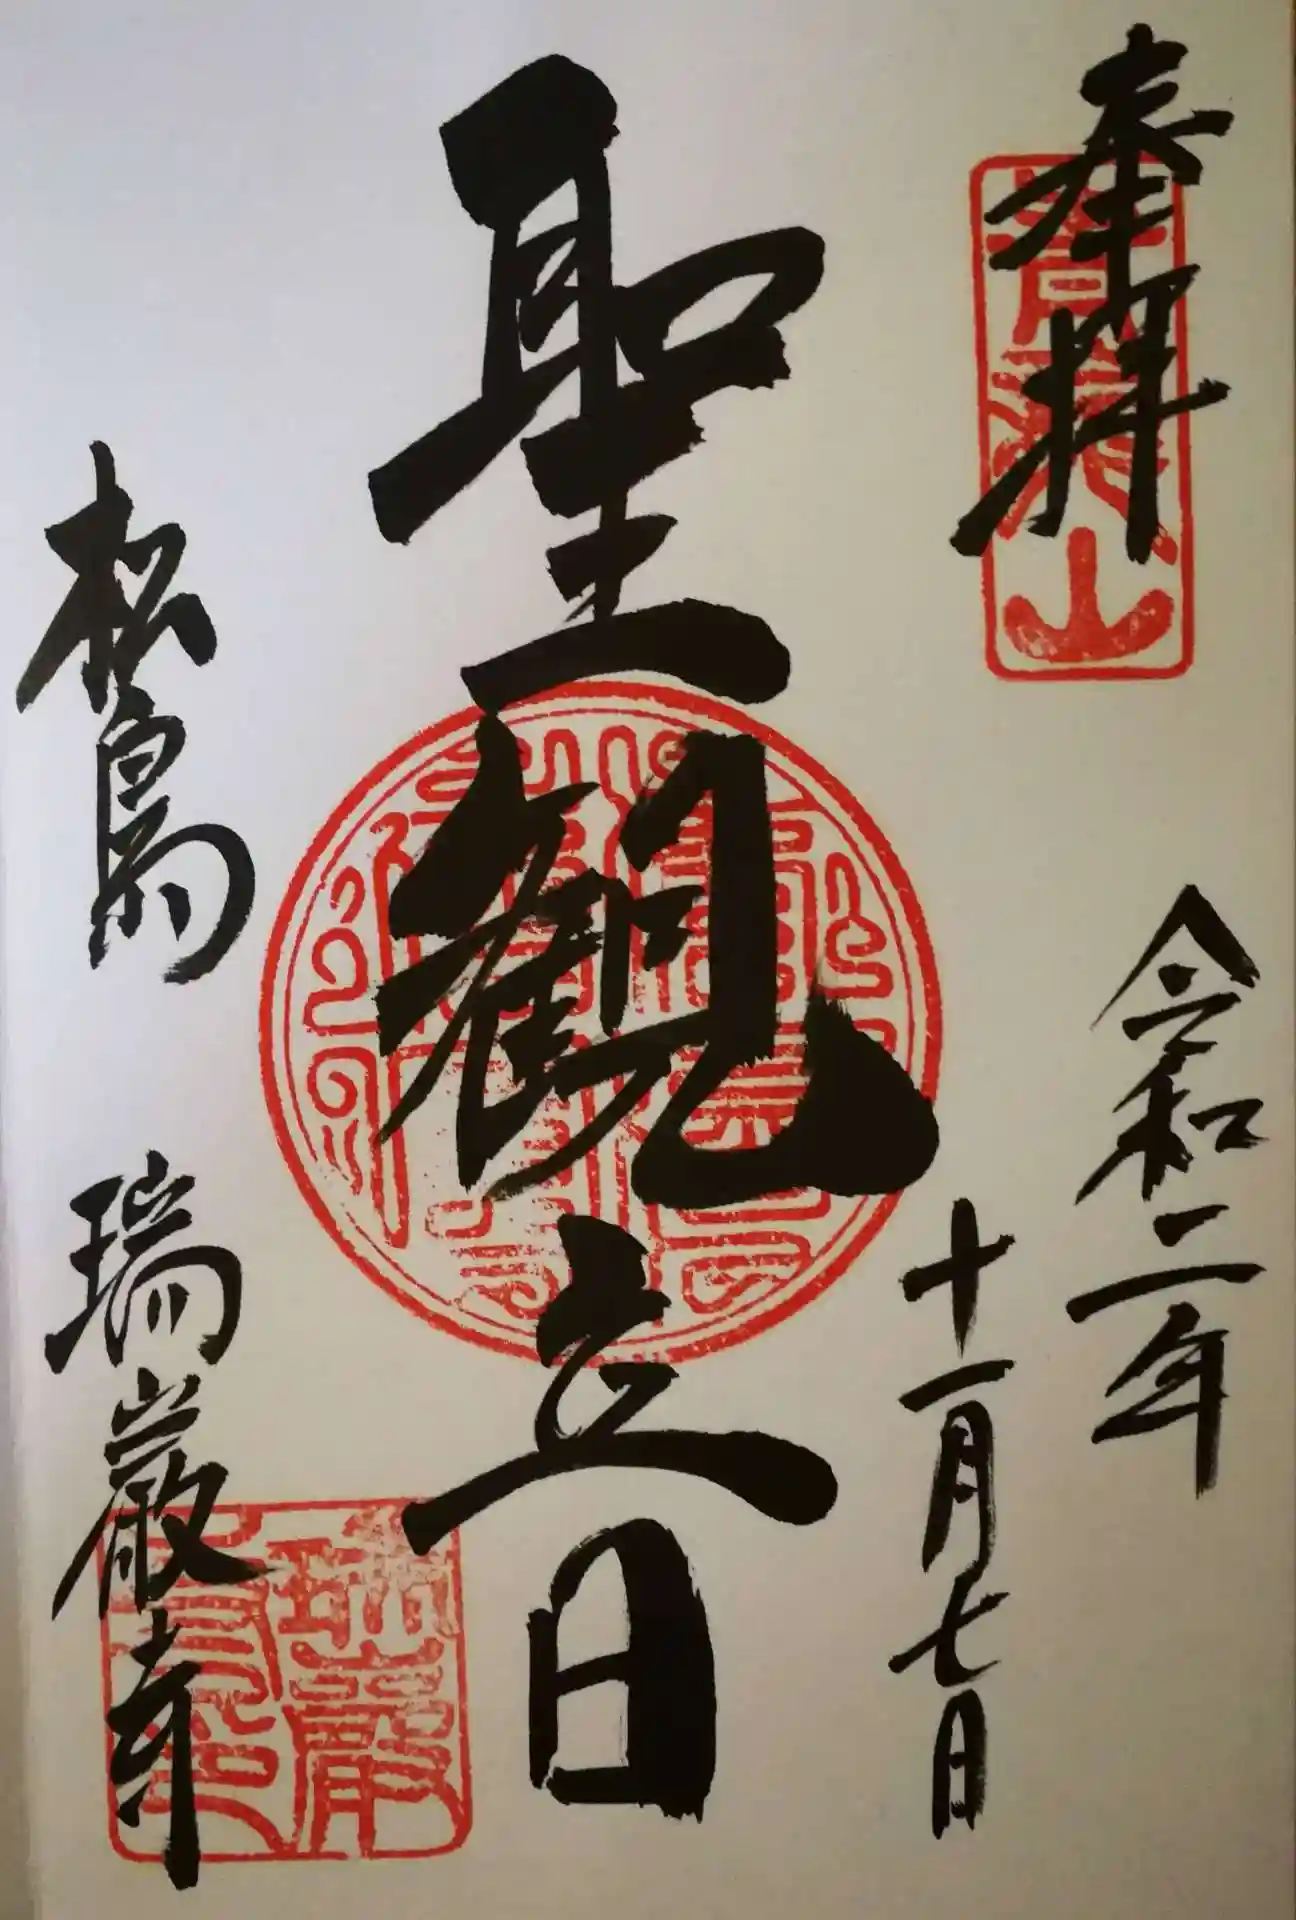 奉拝
青龍山
令和二年
十一月七日
聖観音
松島
瑞巌寺
瑞巌